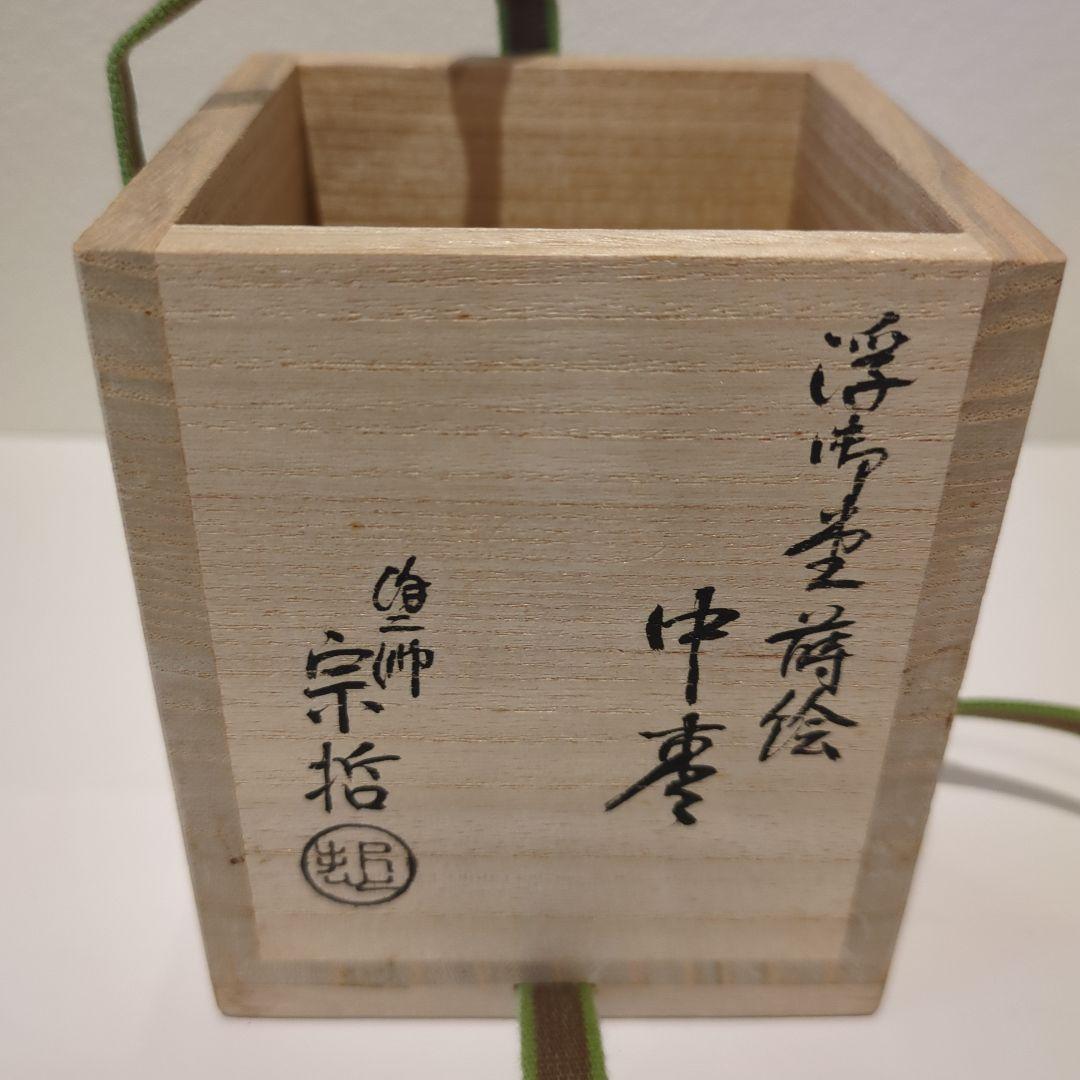 浮御堂蒔絵
中棗
塗師
宗哲